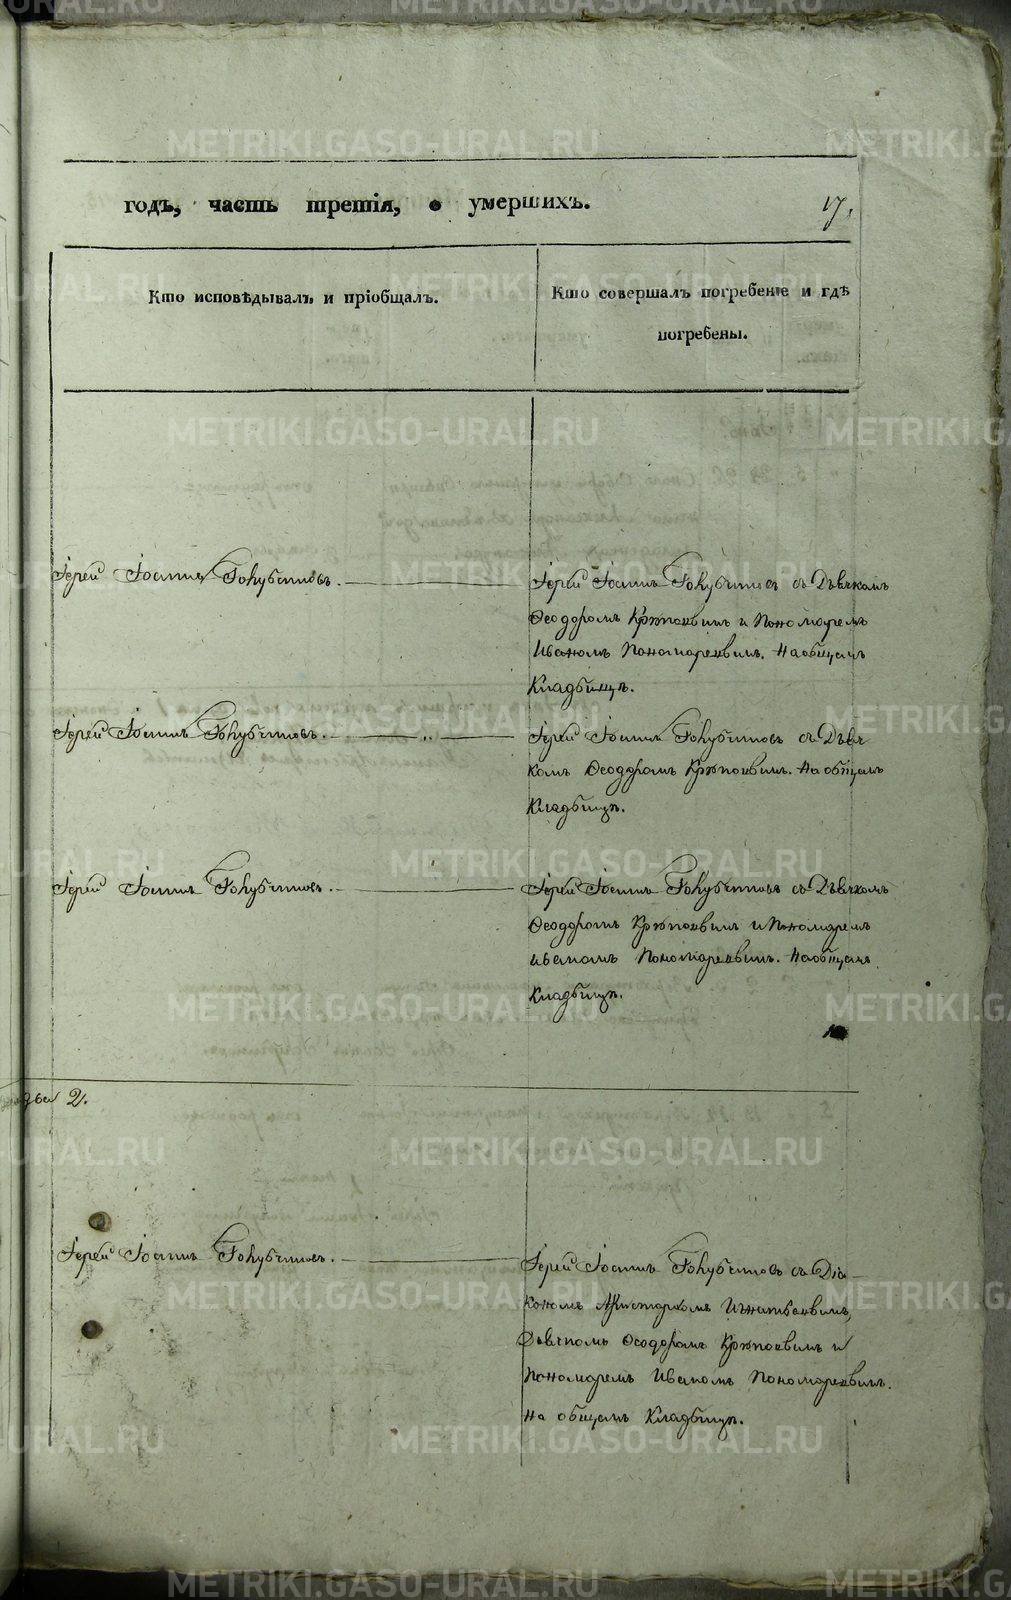 годъ, часть третія, о умершихъ.
17.
Кто исповѣдывалъ и пріобщалъ.
Кто совершалъ погребеніе и гдѣ
погребены.
Іерей Іоаннъ Голубчиковъ.
Іерей Іоаннъ Голубчиковъ съ Дьячкомъ
Ѳеодоромъ Кротковымъ и Пономаремъ
Иваномъ Пономаревымъ. На общемъ
Кладбищѣ.
Іерей Іоаннъ Голубчиковъ.
Іерей Іоаннъ Голубчиковъ съ Дьяч
комъ Ѳеодоромъ Кротковымъ. На общемъ
Кладбищѣ.
Іерей Іоаннъ Голубчиковъ.
Іерей Іоаннъ Голубчиковъ съ Дьячкомъ
Ѳеодоромъ Кротковымъ и Пономаремъ
Иваномъ Пономаревымъ. На общемъ
Кладбищѣ.
2.
Іерей Іоаннъ Голубчиковъ.
Іерей Іоаннъ Голубчиковъ съ Діа
кономъ Аристархомъ Игнатьевымъ,
Дьячкомъ Ѳеодоромъ Кротковымъ и
Пономаремъ Иваномъ Пономаревымъ.
На общемъ Кладбищѣ.
METRIKI.GASO-URAL.RU